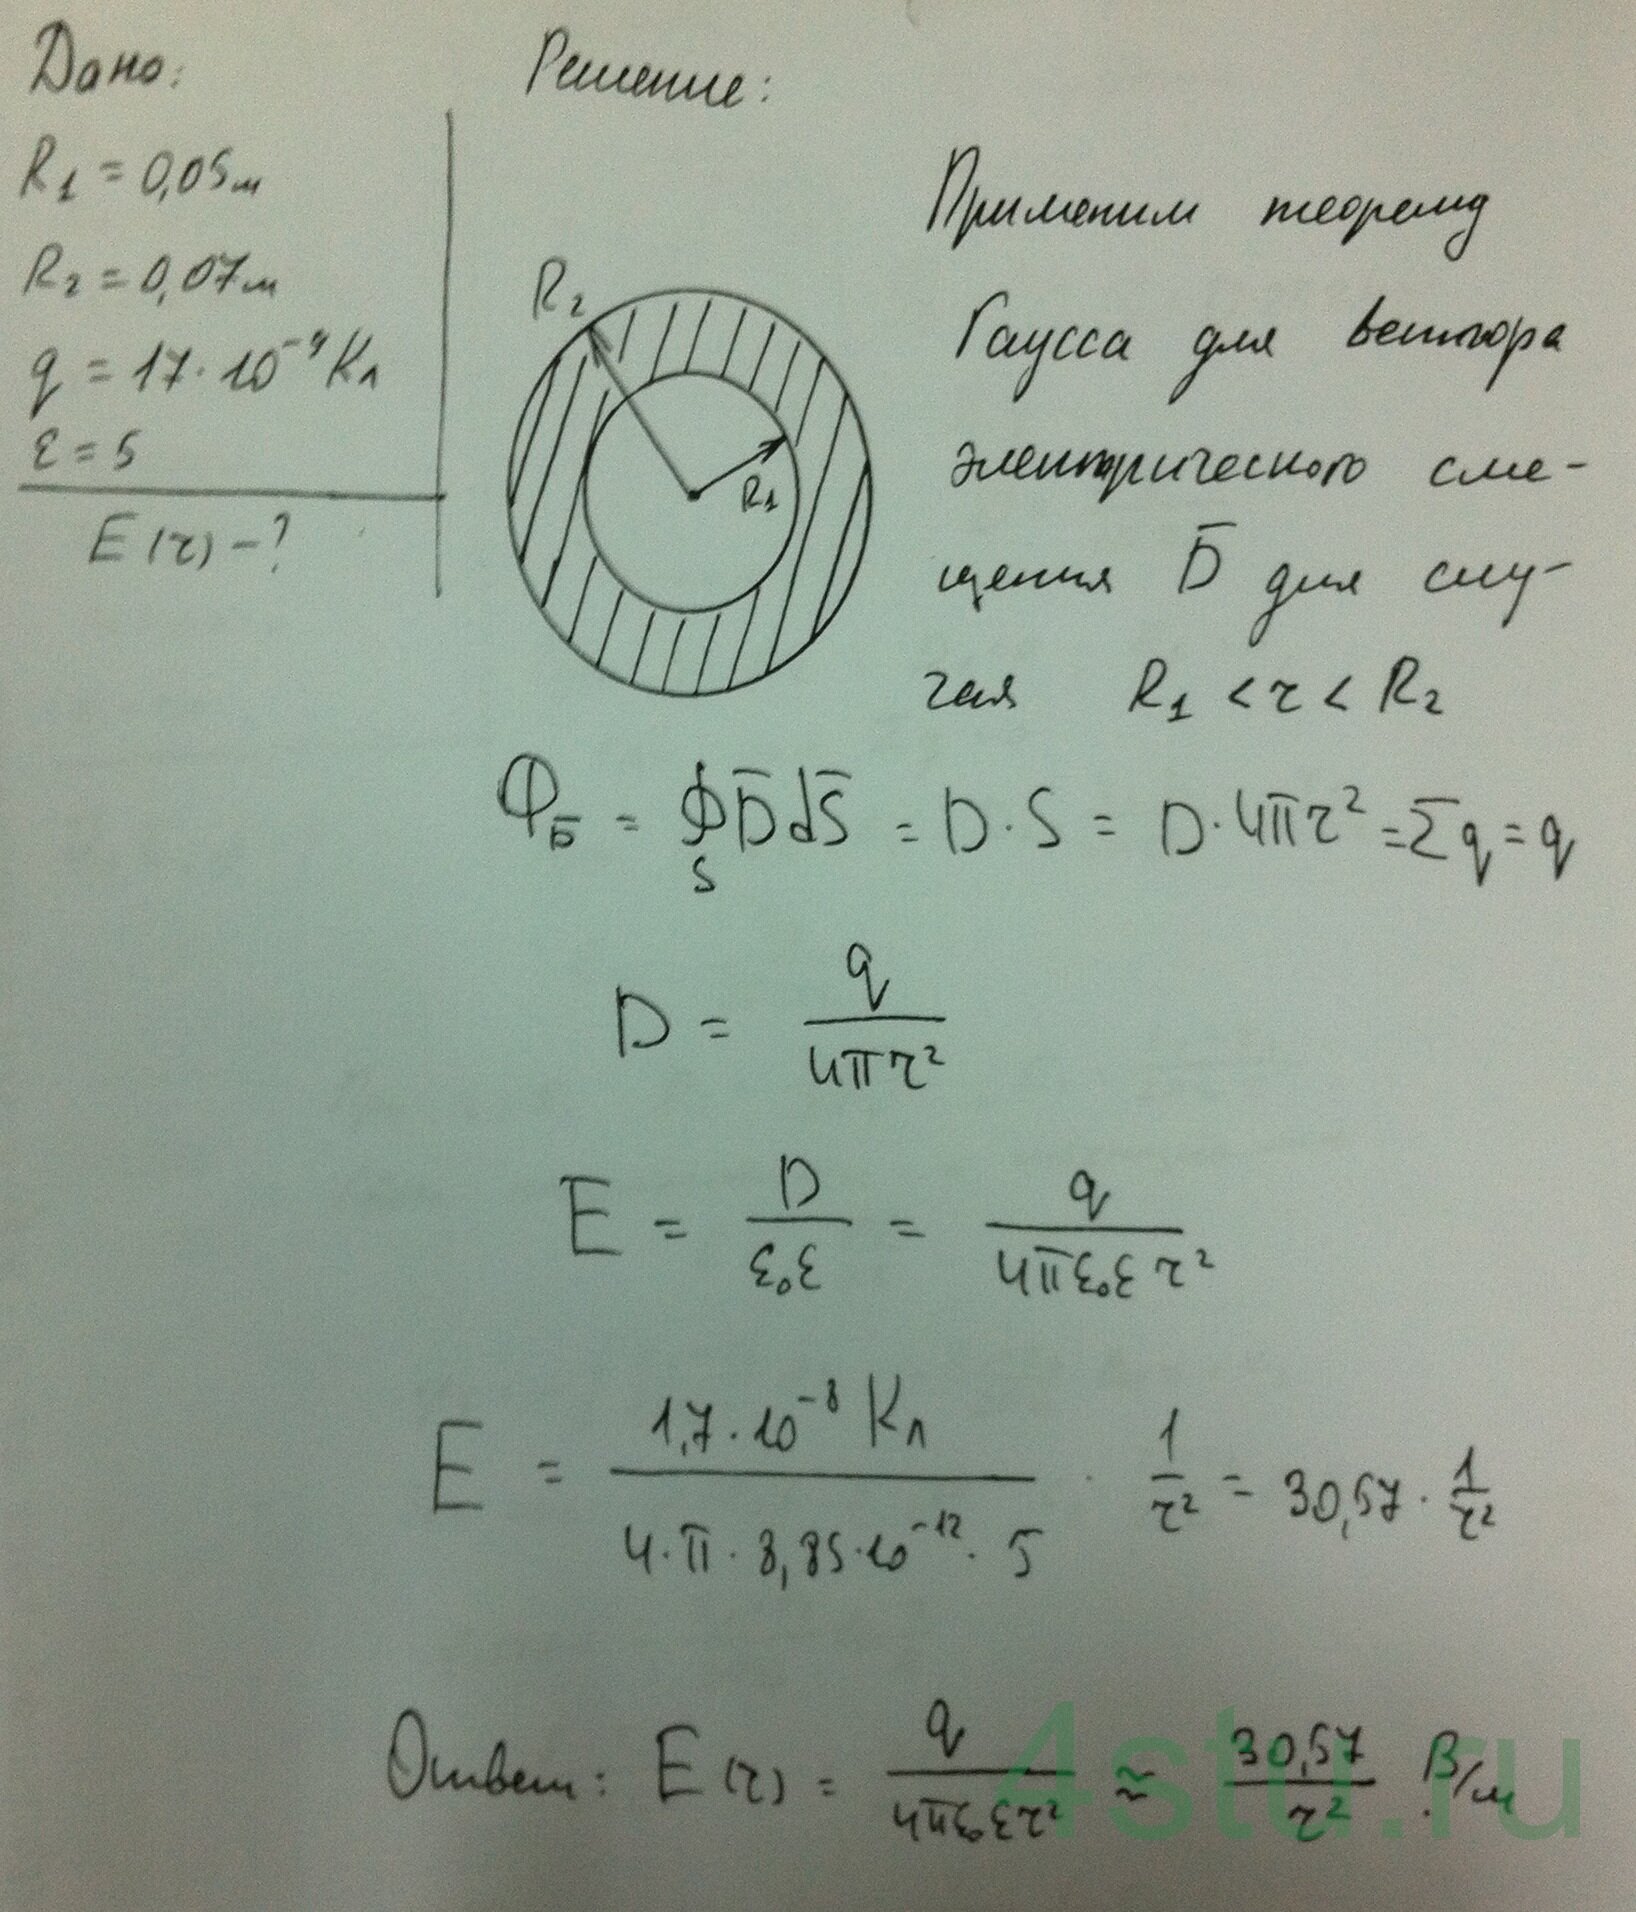 Дано:
R₁ = 0,05м
R₂ = 0,07м
q = 17·10⁻⁹ Кл
ε = 5
E(r) - ?
Решение:
R₂
R₁
Применим теорему
Гаусса для вектора
электрического сме-
щения D̅ для слу-
чая R₁ < r < R₂
Ф_D̅ = ∮_S D̅ dS̅ = D·S = D·4πr² = Σq = q
D = q / 4πr²
E = D / ε₀ε = q / 4πε₀εr²
E = 1,7·10⁻⁸ Кл / 4·π·8,85·10⁻¹²·5 · 1/r² = 30,57 · 1/r²
Ответ: E(r) = q / 4πε₀εr² ≈ 30,57 / r² В/м
4stu.ru